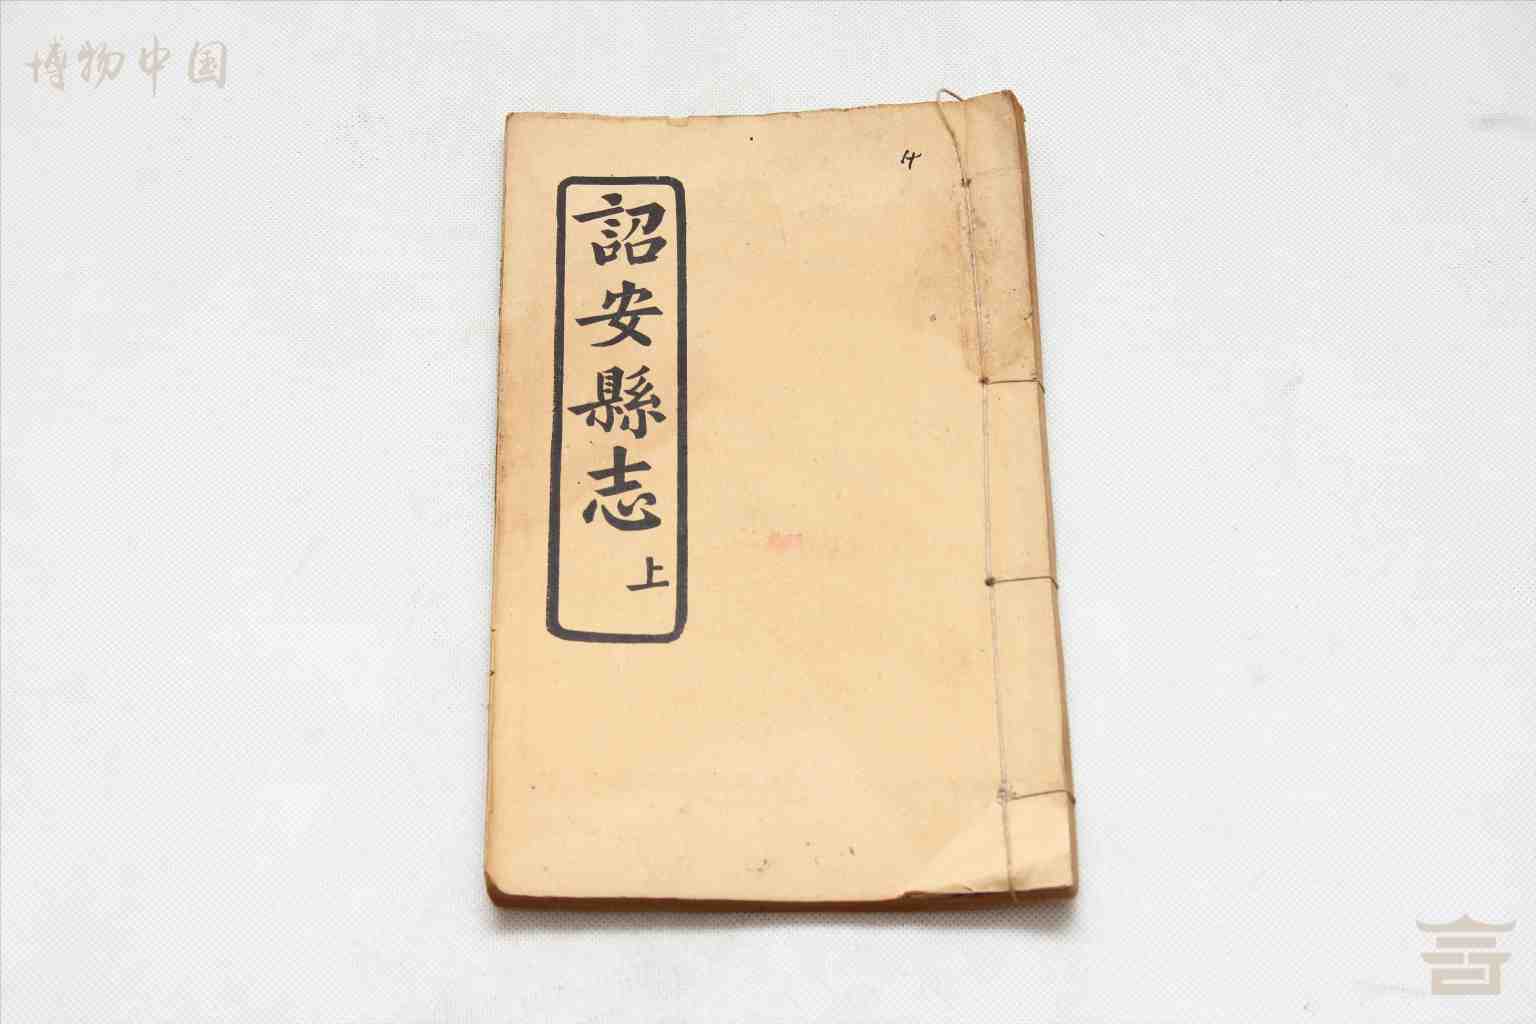 博物中国
詔安縣志
上